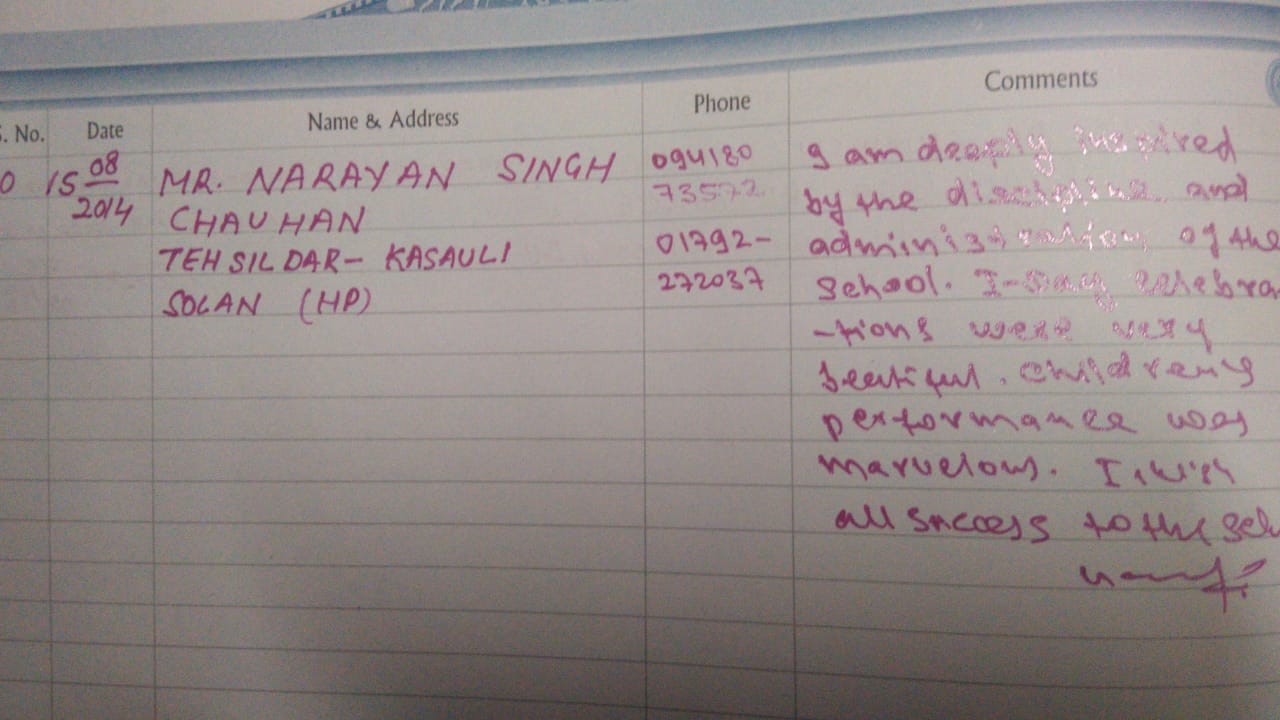 S. No. Date Name & Address Phone Comments
0 15 08 MR. NARAYAN SINGH 094180 I am deeply inspired
2014 CHAUHAN 73572 by the discipline and
TEHSILDAR- KASAULI 01792- administration of the
SOLAN (HP) 272037 School. I-Day celebra
-tions were very
beatiful. Children's
performance was
marvelous. I wish
all success to the sch